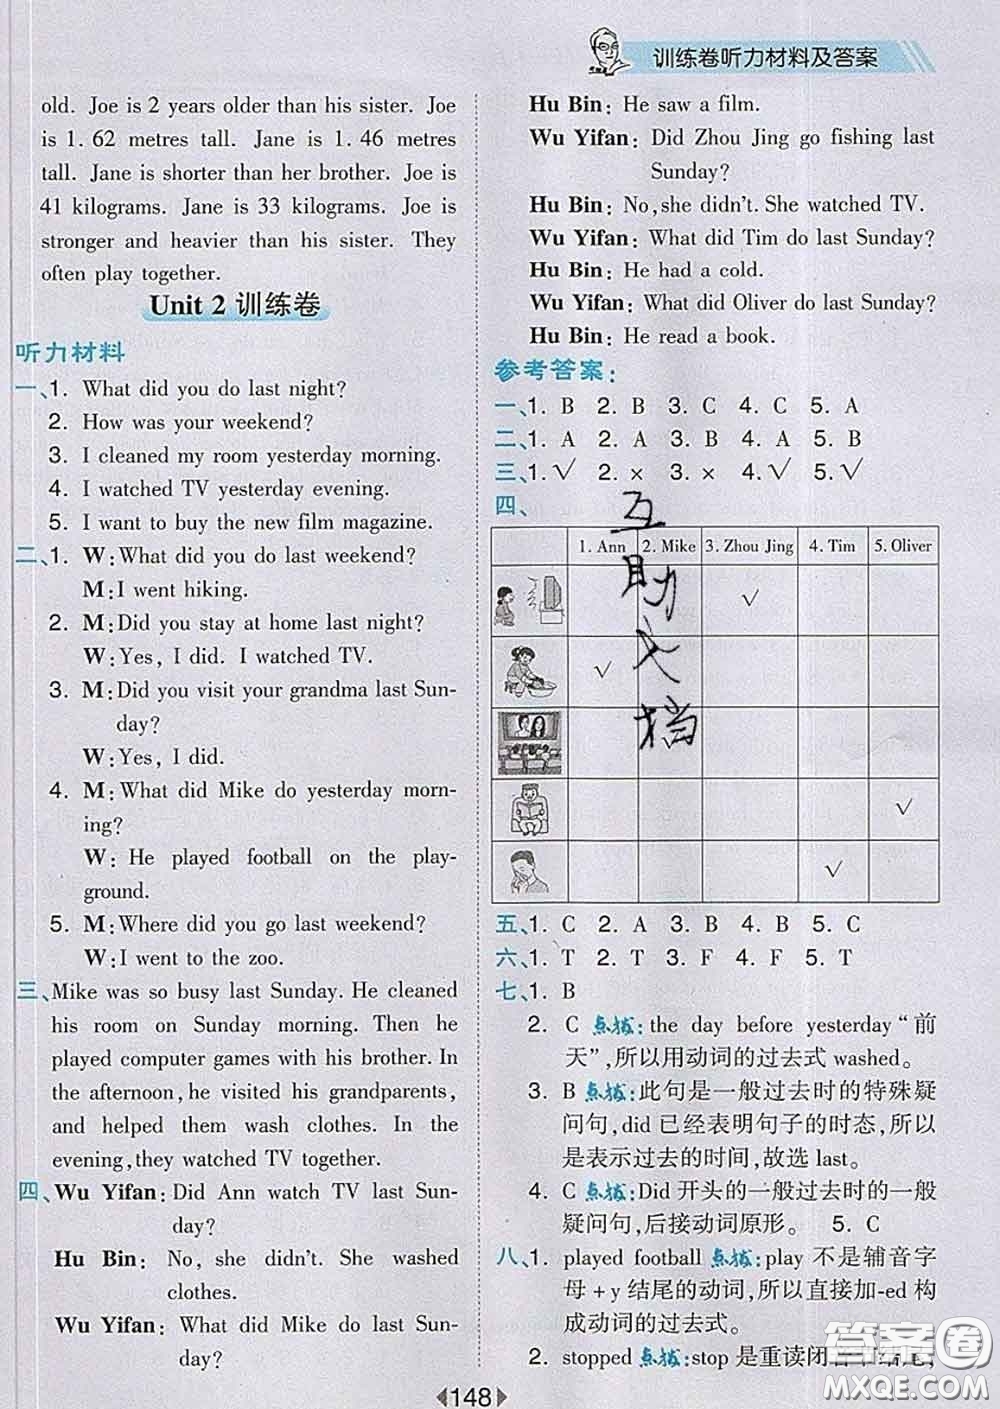 训练卷听力材料及答案
old. Joe is 2 years older than his sister. Joe
is 1. 62 metres tall. Jane is 1. 46 metres
tall. Jane is shorter than her brother. Joe is
41 kilograms. Jane is 33 kilograms. Joe is
stronger and heavier than his sister. They
often play together.
Unit 2 训练卷
听力材料
一、1. What did you do last night?
2. How was your weekend?
3. I cleaned my room yesterday morning.
4. I watched TV yesterday evening.
5. I want to buy the new film magazine.
二、1. W: What did you do last weekend?
M: I went hiking.
2. M: Did you stay at home last night?
W: Yes, I did. I watched TV.
3. M: Did you visit your grandma last Sun-
day?
W: Yes, I did.
4. M: What did Mike do yesterday morn-
ing?
W: He played football on the play-
ground.
5. M: Where did you go last weekend?
W: I went to the zoo.
三、Mike was so busy last Sunday. He cleaned
his room on Sunday morning. Then he
played computer games with his brother. In
the afternoon, he visited his grandparents,
and helped them wash clothes. In the
evening, they watched TV together.
四、Wu Yifan: Did Ann watch TV last Sun-
day?
Hu Bin: No, she didn't. She washed
clothes.
Wu Yifan: What did Mike do last Sun-
day?
Hu Bin: He saw a film.
Wu Yifan: Did Zhou Jing go fishing last
Sunday?
Hu Bin: No, she didn't. She watched TV.
Wu Yifan: What did Tim do last Sunday?
Hu Bin: He had a cold.
Wu Yifan: What did Oliver do last Sunday?
Hu Bin: He read a book.
参考答案:
一、1. B 2. B 3. C 4. C 5. A
二、1. A 2. A 3. B 4. A 5. B
三、1. √ 2. × 3. × 4. √ 5. √
四、
1. Ann 2. Mike 3. Zhou Jing 4. Tim 5. Oliver
√
√
√
√
互
助
文
档
五、1. C 2. A 3. B 4. B 5. C
六、1. T 2. T 3. F 4. F 5. T
七、1. B
2. C 点拨:the day before yesterday“前
天”,所以用动词的过去式 washed。
3. B 点拨:此句是一般过去时的特殊疑
问句,did 已经表明句子的时态,所以last
是表示过去的时间,故选 last。
4. C 点拨:Did 开头的一般过去时的一般
疑问句,后接动词原形。 5. C
八、1. played football 点拨:play 不是辅音字
母 + y 结尾的动词,所以直接加-ed 构
成动词的过去式。
2. stopped 点拨:stop 是重读闭音节结尾,
148
答案圈
MXQE.COM